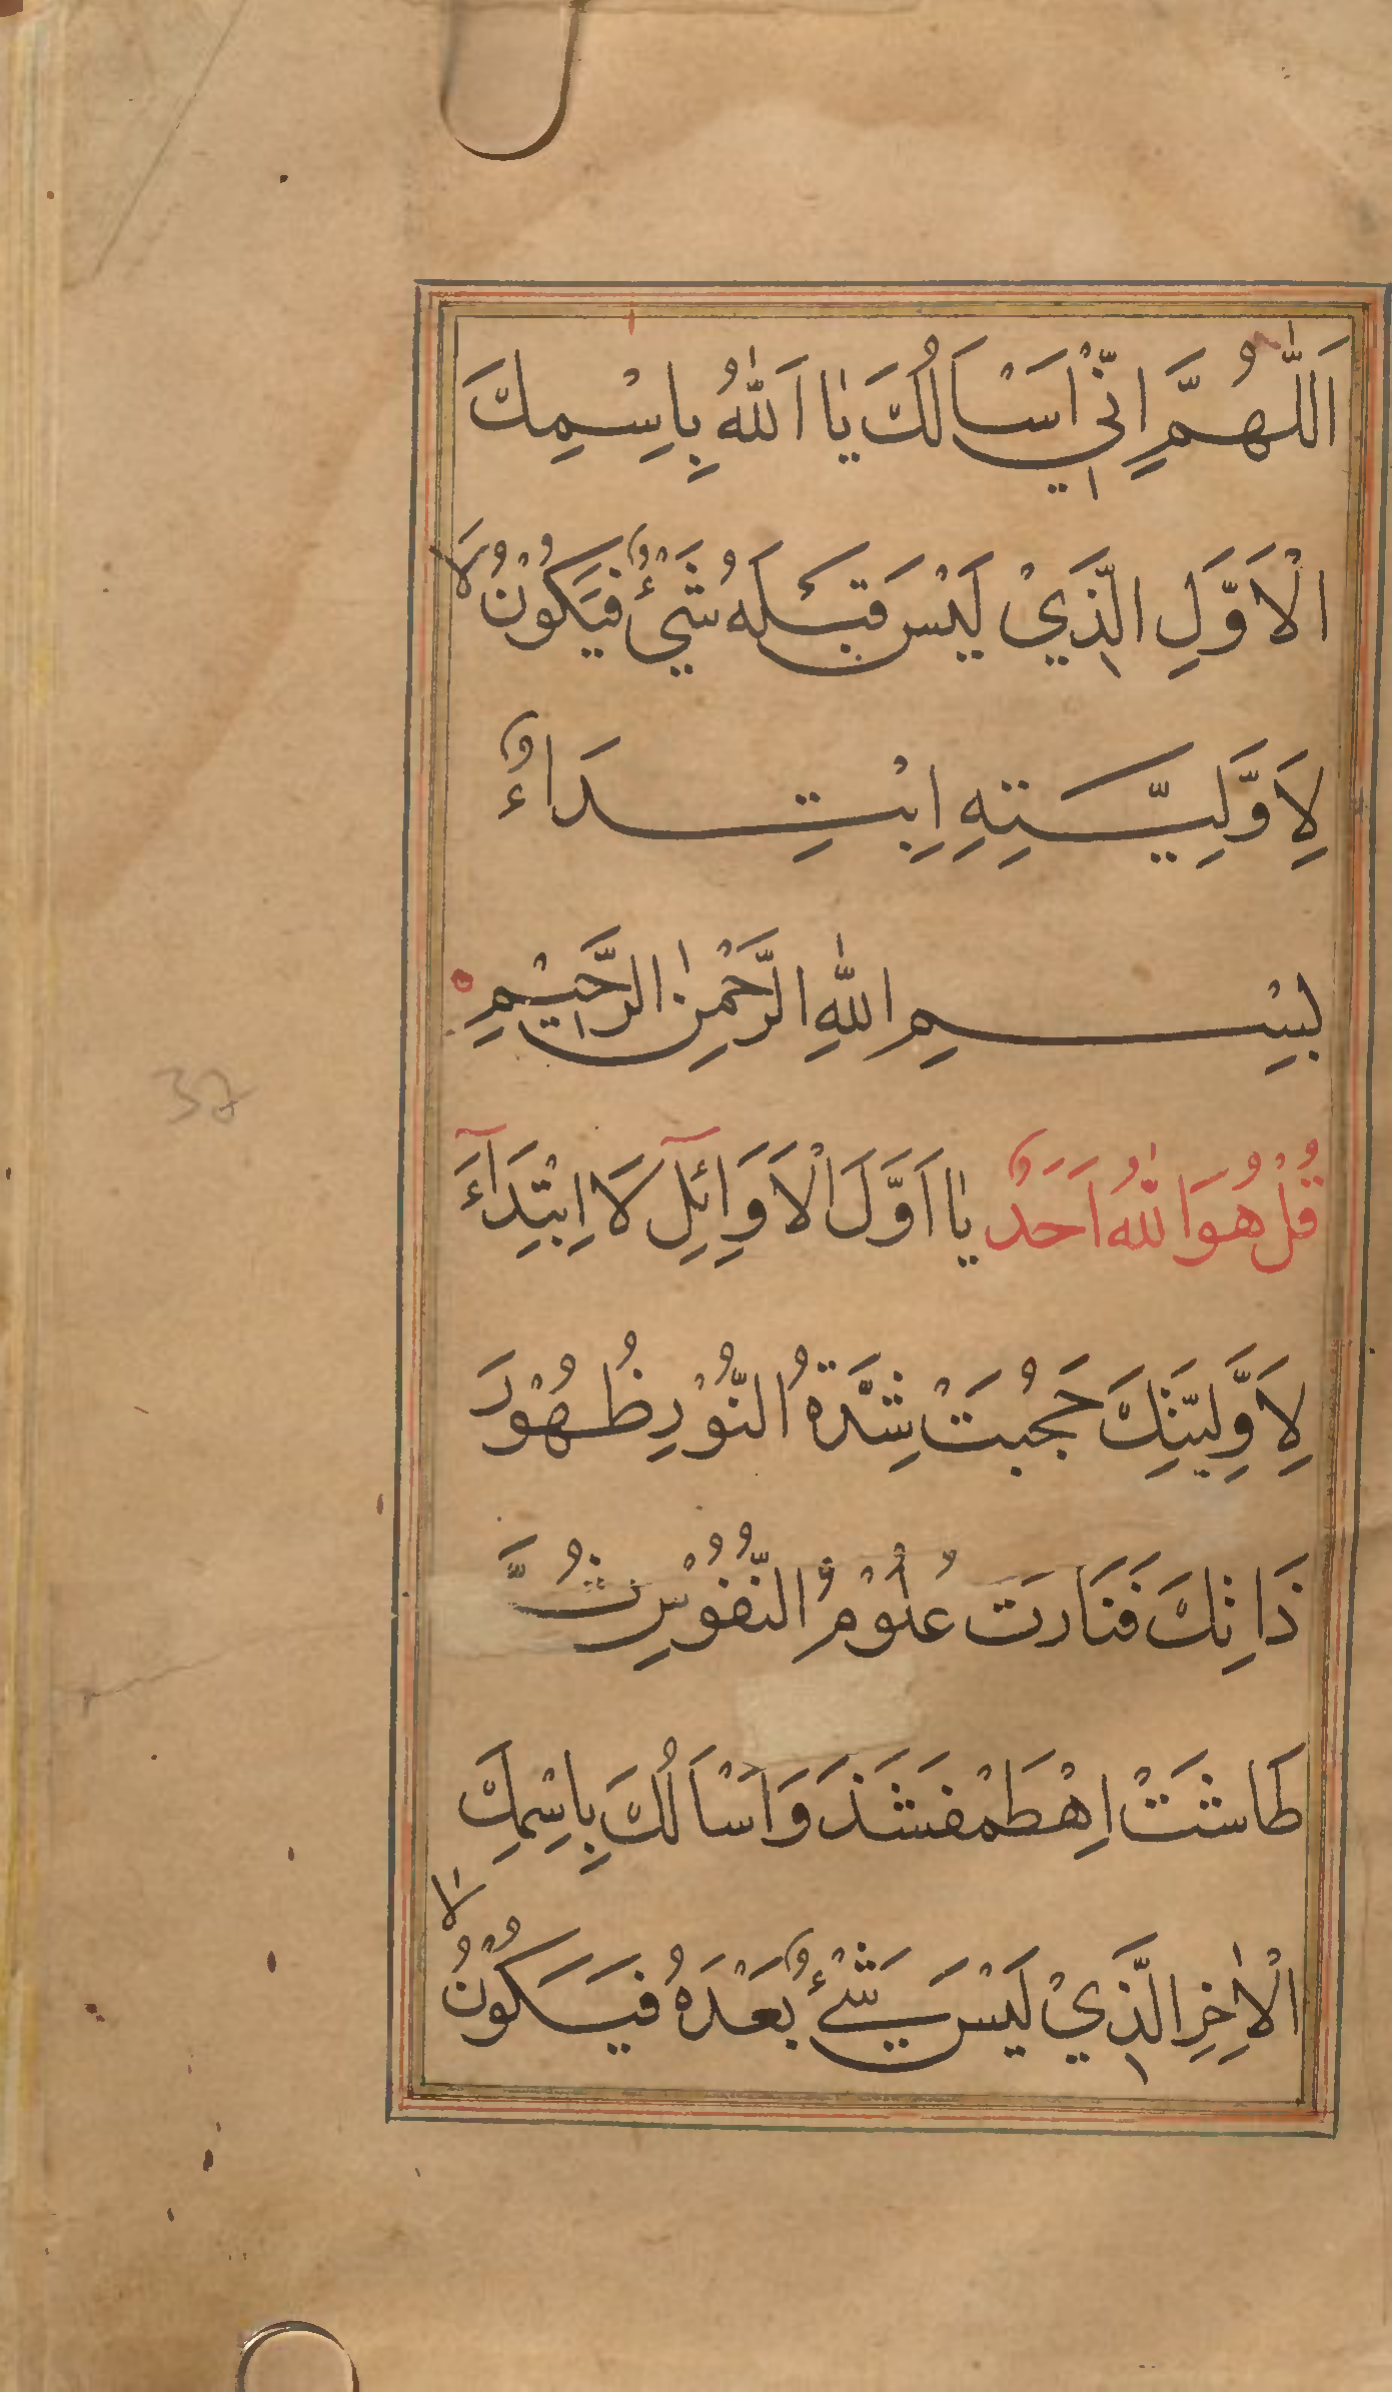 اَللّٰهُمَّ اِنِّيْ اَسْاَلُكَ يٰا اَللّٰهُ بِاِسْمِكَ
الْاَوَّلِ الَّذِيْ لَيْسَ قَبْلَهُ شَيْءٌ فَيَكُوْنُ لَا
لِاَوَّلِيَّتِهِ اِبْتِدَاءٌ
بِسْمِ اللّٰهِ الرَّحْمٰنِ الرَّحِيْمِ
قُلْ هُوَ اللّٰهُ اَحَدٌ يٰا اَوَّلَ الْاَوَائِلِ لَا اِبْتِدَآءَ
لِاَوَّلِيَّتِكَ حَجُبَتْ شِدَّةُ النُّوْرِ ظُهُوْرَ
ذَاتِكَ فَنَارَتَ عُلُوْمُ النُّفُوْسِ ثُمَّ
طَاشَتْ اِهْطَمْفَشَذَ وَاَسْاَلُكَ بِاِسْمِكَ
الْاٰخِرِ الَّذِيْ لَيْسَ شَيْءٌ بَعْدَهُ فَيَكُوْنُ لٰا
37